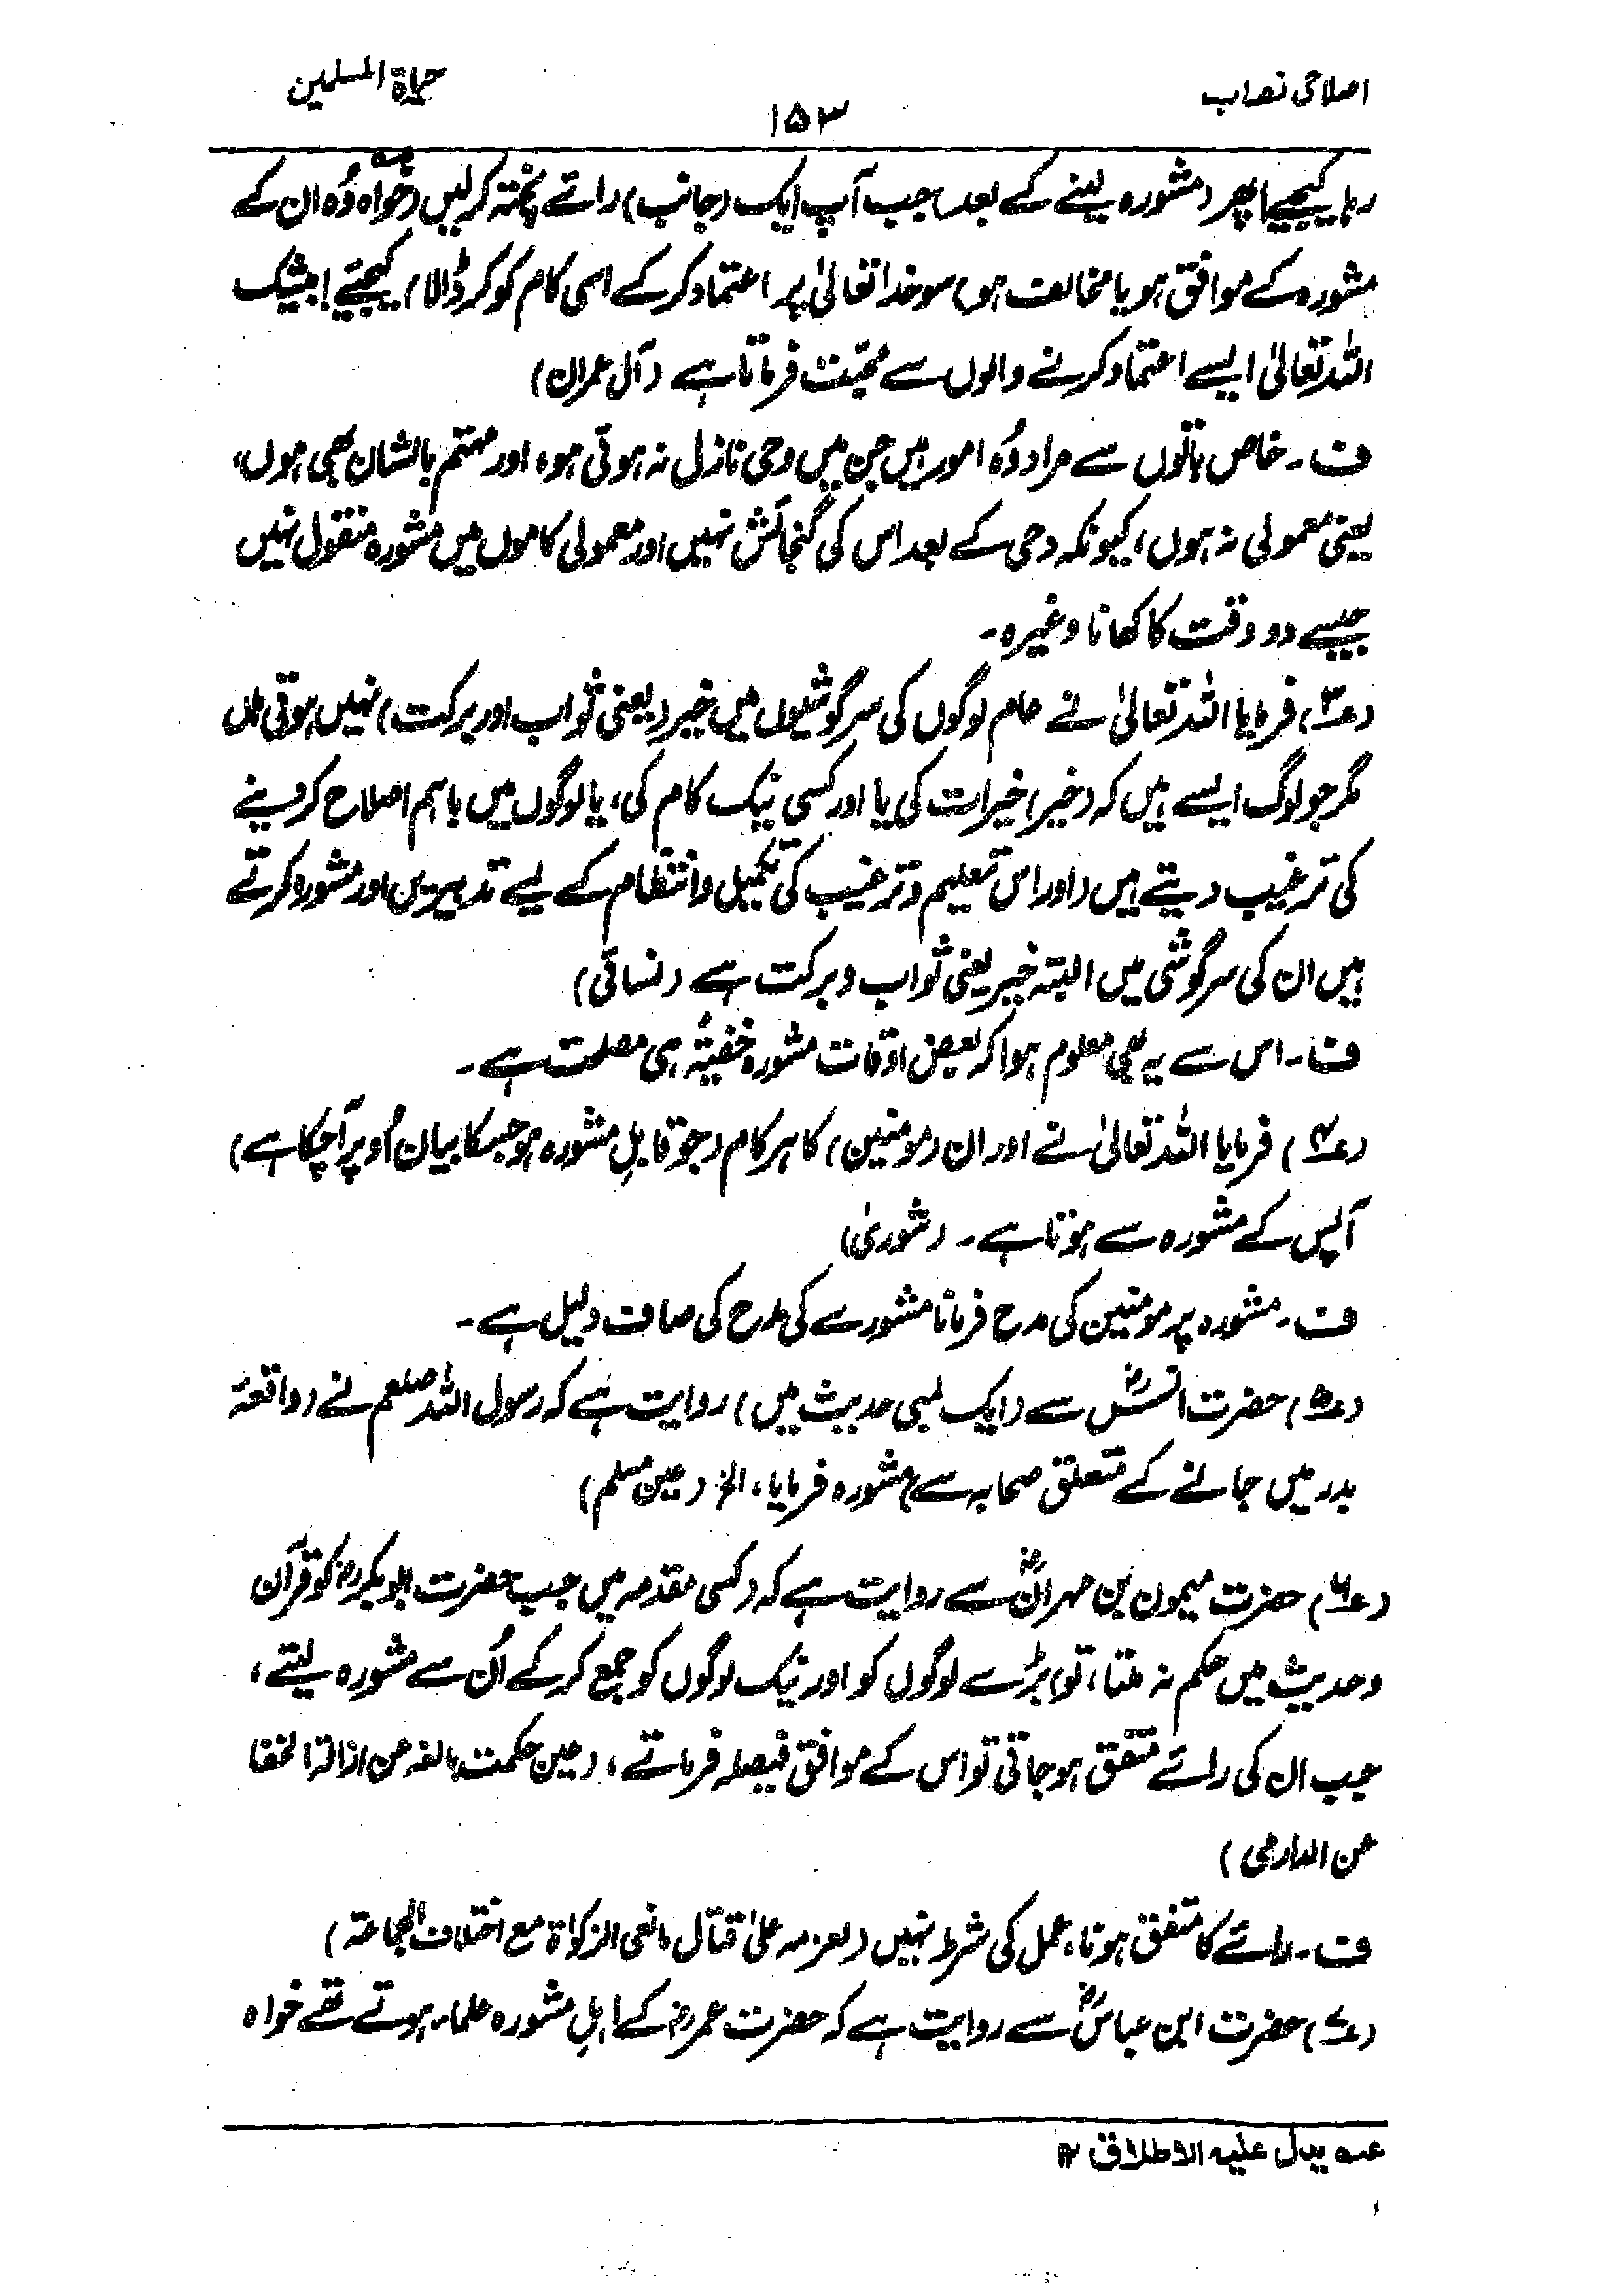 اصلاحی نصاب
۱۵۳
حیاۃ المسلمین
رہا کیجیے) پھر (مشورہ لینے کے بعد) جب آپ ایک (جانب) رائے پختہ کرلیں (خواہ وُہ ان کے
مشورہ کے موافق ہو یا مخالف ہو) سو خدا تعالیٰ پر اعتماد کرکے اسی کام کو کر ڈالا) کیجئیے! بیشک
اللہ تعالیٰ ایسے اعتماد کرنے والوں سے محبّت فرماتا ہے (آل عمران)
ف۔ خاص باتوں سے مراد وُہ امور ہیں جن میں وحی نازل نہ ہوئی ہو، اور مہتم بالشان بھی ہوں،
یعنی معمولی نہ ہوں، کیونکہ وحی کے بعد اس کی گنجائش نہیں اور معمولی کاموں میں مشورہ منقول نہیں
جیسے دو وقت کا کھانا وغیرہ۔
(ع۳) فرمایا اللہ تعالیٰ نے عام لوگوں کی سرگوشیوں میں خیر (یعنی ثواب اور برکت) نہیں ہوتی ہاں
مگر جو لوگ ایسے ہیں کہ (خیر) خیرات کی یا اور کسی نیک کام کی، یا لوگوں میں باہم اصلاح کر دینے
کی ترغیب دیتے ہیں (اور اس تعلیم و ترغیب کی تکمیل و انتظام کے لیے تدبیریں اور مشورہ کرتے
ہیں ان کی سرگوشی میں البتہ خیر یعنی ثواب و برکت ہے (نسائی)
ف۔ اس سے یہ بھی معلوم ہوا کہ بعض اوقات مشورہ خفیتہً ہی مصلحت ہے۔
(ع۴) فرمایا اللہ تعالیٰ نے اور ان (مومنین) کا ہر کام (جو قابلِ مشورہ ہو جسکا بیان اُوپر آچکا ہے)
آپس کے مشورہ سے ہوتا ہے۔ (شوریٰ)
ف۔ مشورہ پر مومنین کی مدح فرمانا مشورے کی مدح کی صاف دلیل ہے۔
(ع۵) حضرت انسؓ سے (ایک لمبی حدیث میں) روایت ہے کہ رسول اللہ صلعم نے (واقعۂ
بدر میں جانے کے متعلق صحابہ سے) مشورہ فرمایا، الخ (عین مسلم)
(ع۶) حضرت میمون بن مہرانؓ سے روایت ہے کہ (کسی مقدمہ میں جب حضرت ابوبکرؓ کو قرآن
و حدیث میں حکم نہ ملتا، تو) بڑے لوگوں کو اور نیک لوگوں کو جمع کرکے اُن سے مشورہ لیتے،
جب ان کی رائے متفق ہو جاتی تو اس کے موافق فیصلہ فرماتے، (عین حکمت بالغہ عن ازالۃ الخفا
عن الدارمی)
ف۔ رائے کا متفق ہونا، عمل کی شرط نہیں (لعزمہ علیٰ قتال مانعی الزکوٰۃ مع اختلاف الجماعۃ)
(ع۷) حضرت ابن عباسؓ سے روایت ہے کہ حضرت عمرؓ کے اہلِ مشورہ علماء ہوتے تھے خواہ
عہ یدل علیہ الاطلاق ۱۲